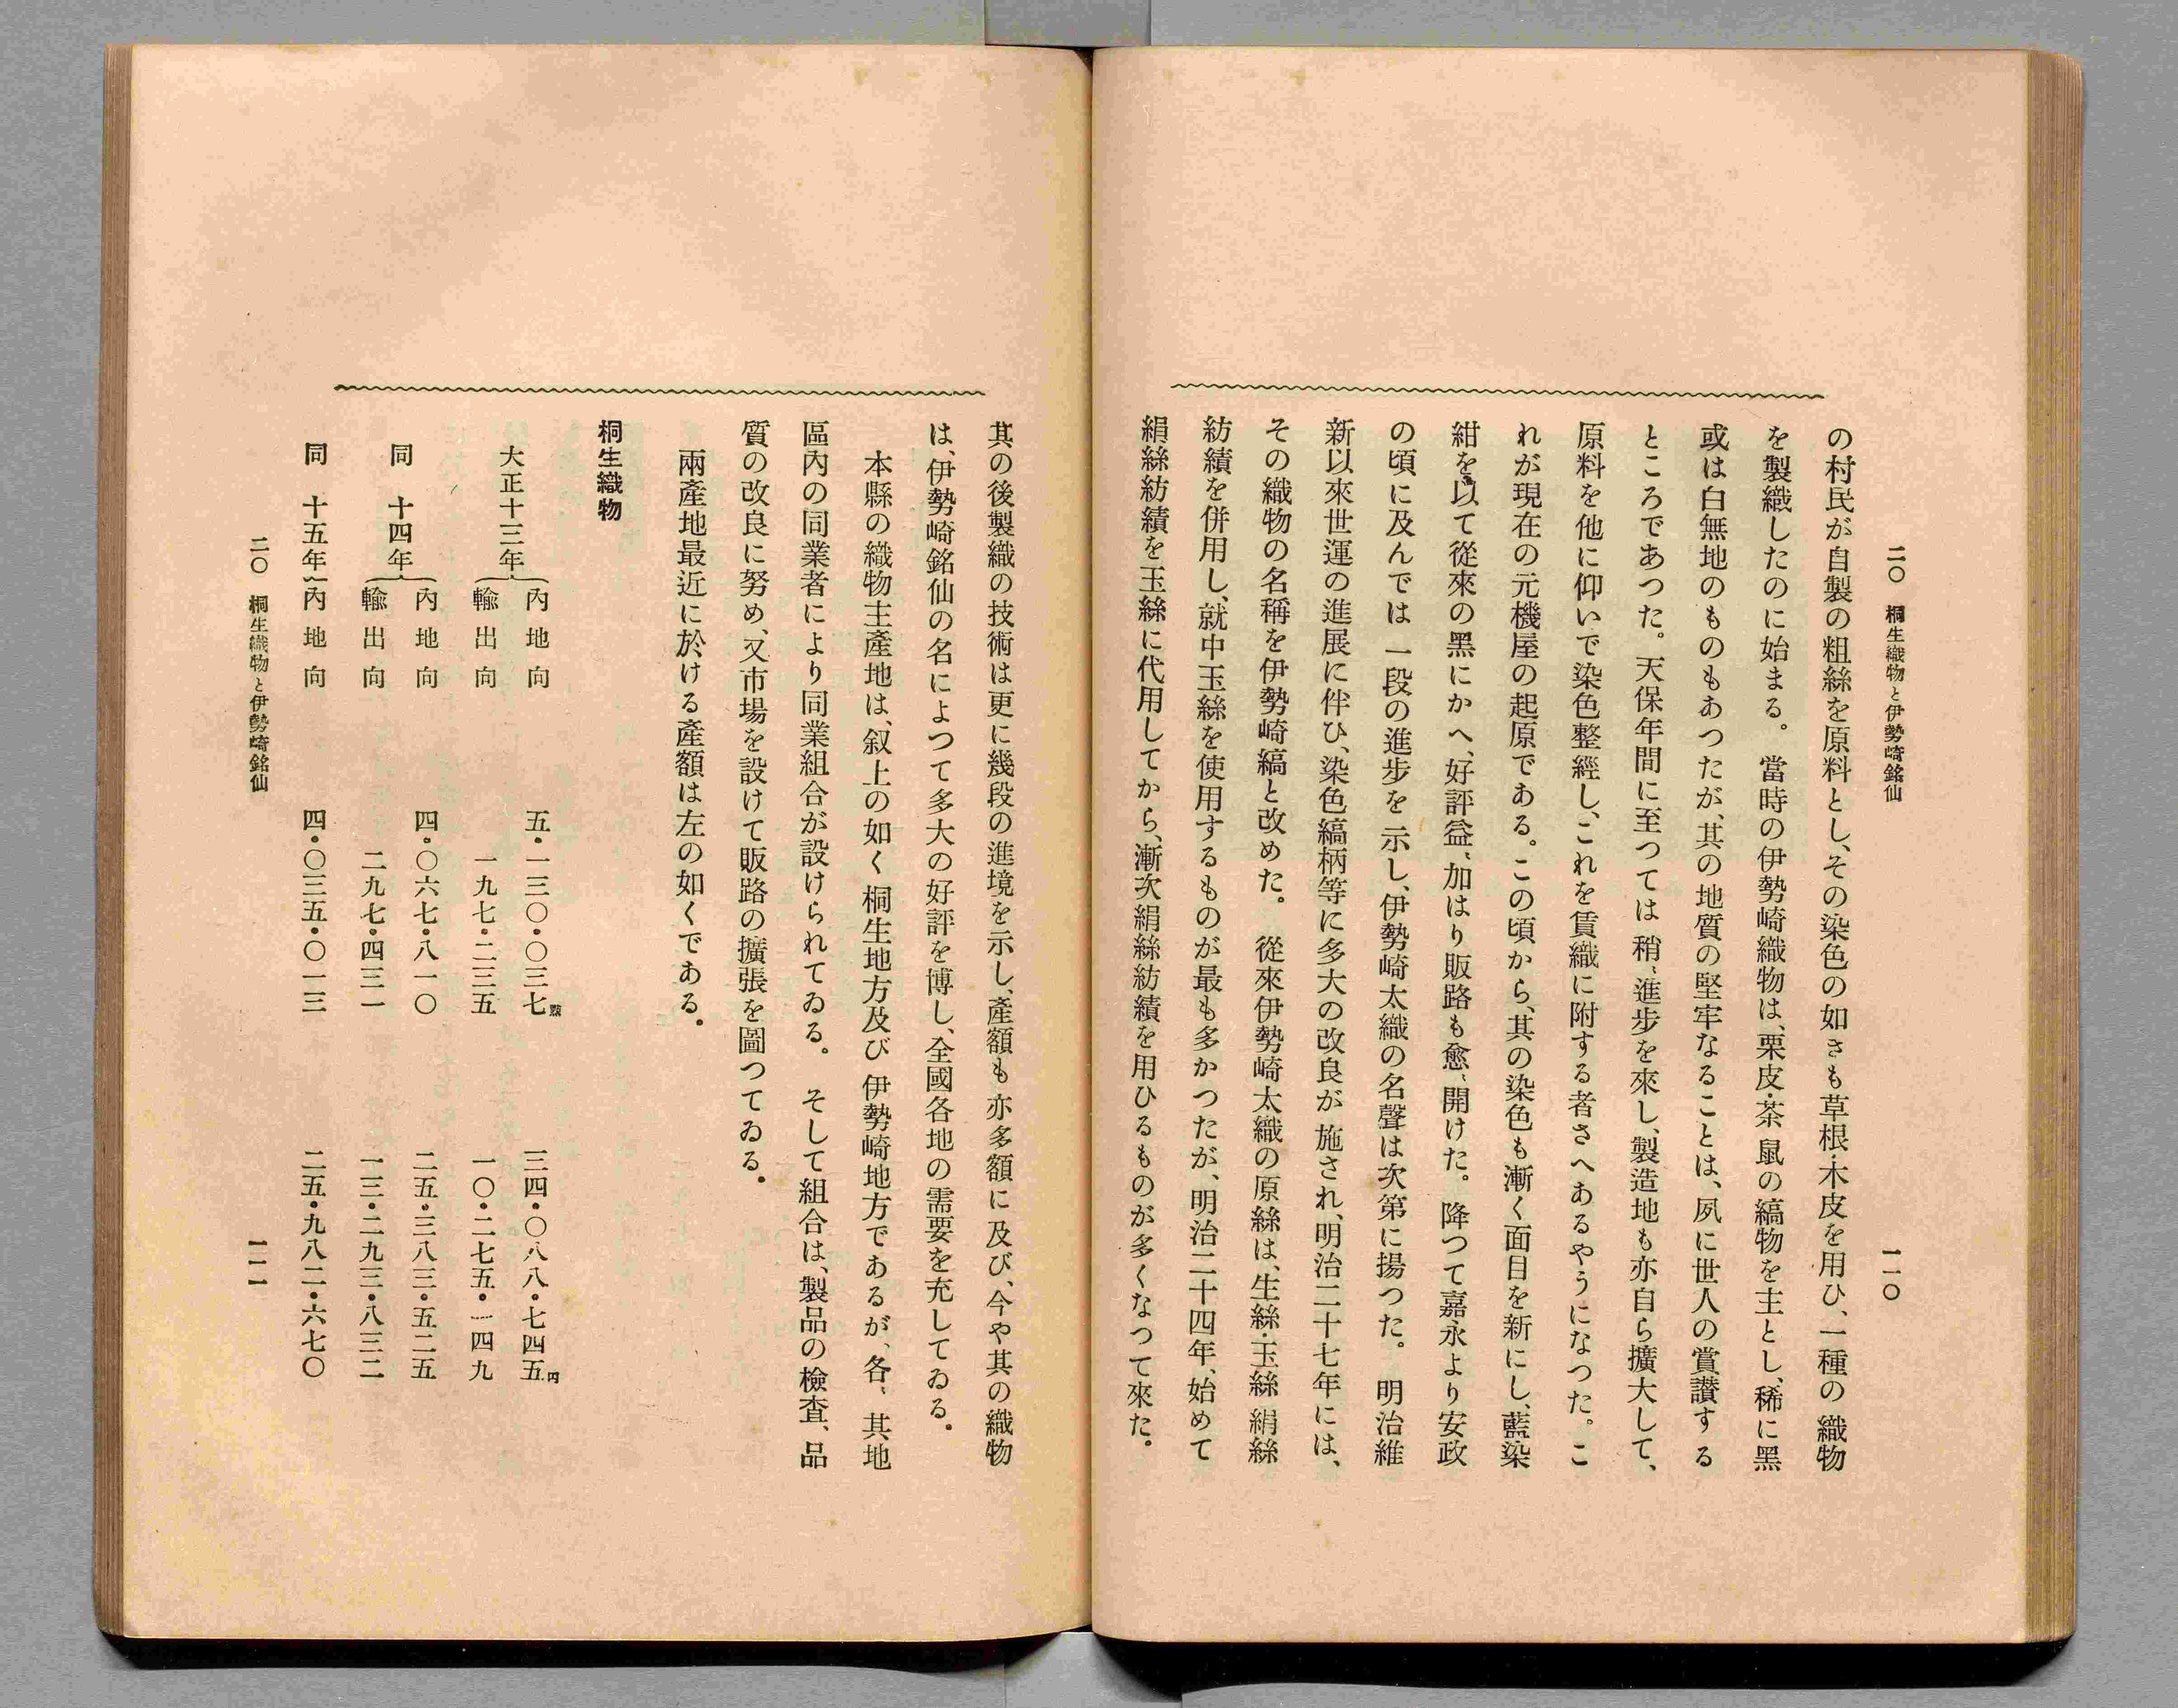 二〇　桐生織物と伊勢崎銘仙　一一〇
の村民が自製の粗絲を原料とし、その染色の如きも草根・木皮を用ひ、一種の織物
を製織したのに始まる。當時の伊勢崎織物は、栗皮・茶鼠の縞物を主とし、稀に黑
或は白無地のものもあつたが、其の地質の堅牢なることは、夙に世人の賞讃する
ところであつた。天保年間に至つては稍〻進步を來し、製造地も亦自ら擴大して、
原料を他に仰いで染色整經し、これを賃織に附する者さへあるやうになつた。こ
れが現在の元機屋の起原である。この頃から、其の染色も漸く面目を新にし、藍染
紺を以て從來の黑にかへ、好評益〻加はり販路も愈〻開けた。降つて嘉永より安政
の頃に及んでは一段の進步を示し、伊勢崎太織の名聲は次第に揚つた。明治維
新以來世運の進展に伴ひ、染色縞柄等に多大の改良が施され、明治二十七年には、
その織物の名稱を伊勢崎縞と改めた。從來伊勢崎太織の原絲は、生絲・玉絲絹絲
紡績を併用し、就中玉絲を使用するものが最も多かつたが、明治二十四年、始めて
絹絲紡績を玉絲に代用してから、漸次絹絲紡績を用ひるものが多くなつて來た。
其の後製織の技術は更に幾段の進境を示し、產額も亦多額に及び、今や其の織物
は、伊勢崎銘仙の名によつて多大の好評を博し、全國各地の需要を充してゐる。
本縣の織物主產地は、叙上の如く桐生地方及び伊勢崎地方であるが、各〻其地
區內の同業者により同業組合が設けられてゐる。そして組合は、製品の檢査、品
質の改良に努め、又市場を設けて販路の擴張を圖つてゐる。
兩產地最近に於ける產額は左の如くである。
桐生織物
大正十三年　內地向　五・一三〇・〇三七點　三四・〇八八・七四五円
輸出向　一九七・二三五　一〇・二七五・一四九
同　十四年　內地向　四・〇六七・八一〇　二五・三八三・五二五
輸出向　二九七・四三一　一三・二九三・八三二
同　十五年　內地向　四・〇三五・〇一三　二五・九八二・六七〇
二〇　桐生織物と伊勢崎銘仙　一一一